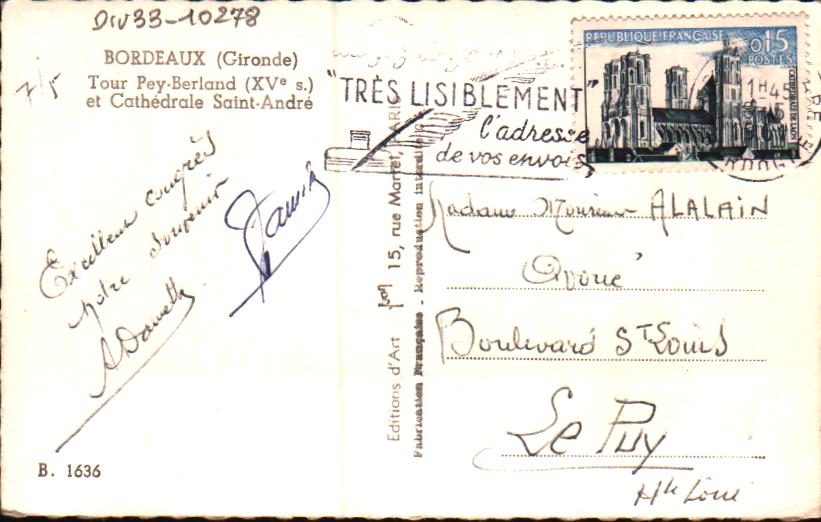 Div33-10278
7/5
BORDEAUX (Gironde)
Tour Pey-Berland (XVe s.)
et Cathédrale Saint-André
Excellent congrès
notre souvenir
B. 1636
"TRÈS LISIBLEMENT"
l'adresse
de vos envois
Editions d'Art 15, rue Martel, PARIS
Fabrication Française - Reproduction interdite
REPUBLIQUE FRANÇAISE
0,15
POSTES
CATHEDRALE DE LAON
1H45
Madame Monsieur ALALAIN
Avoué
Boulevard St Louis
Le Puy
Hte Loire